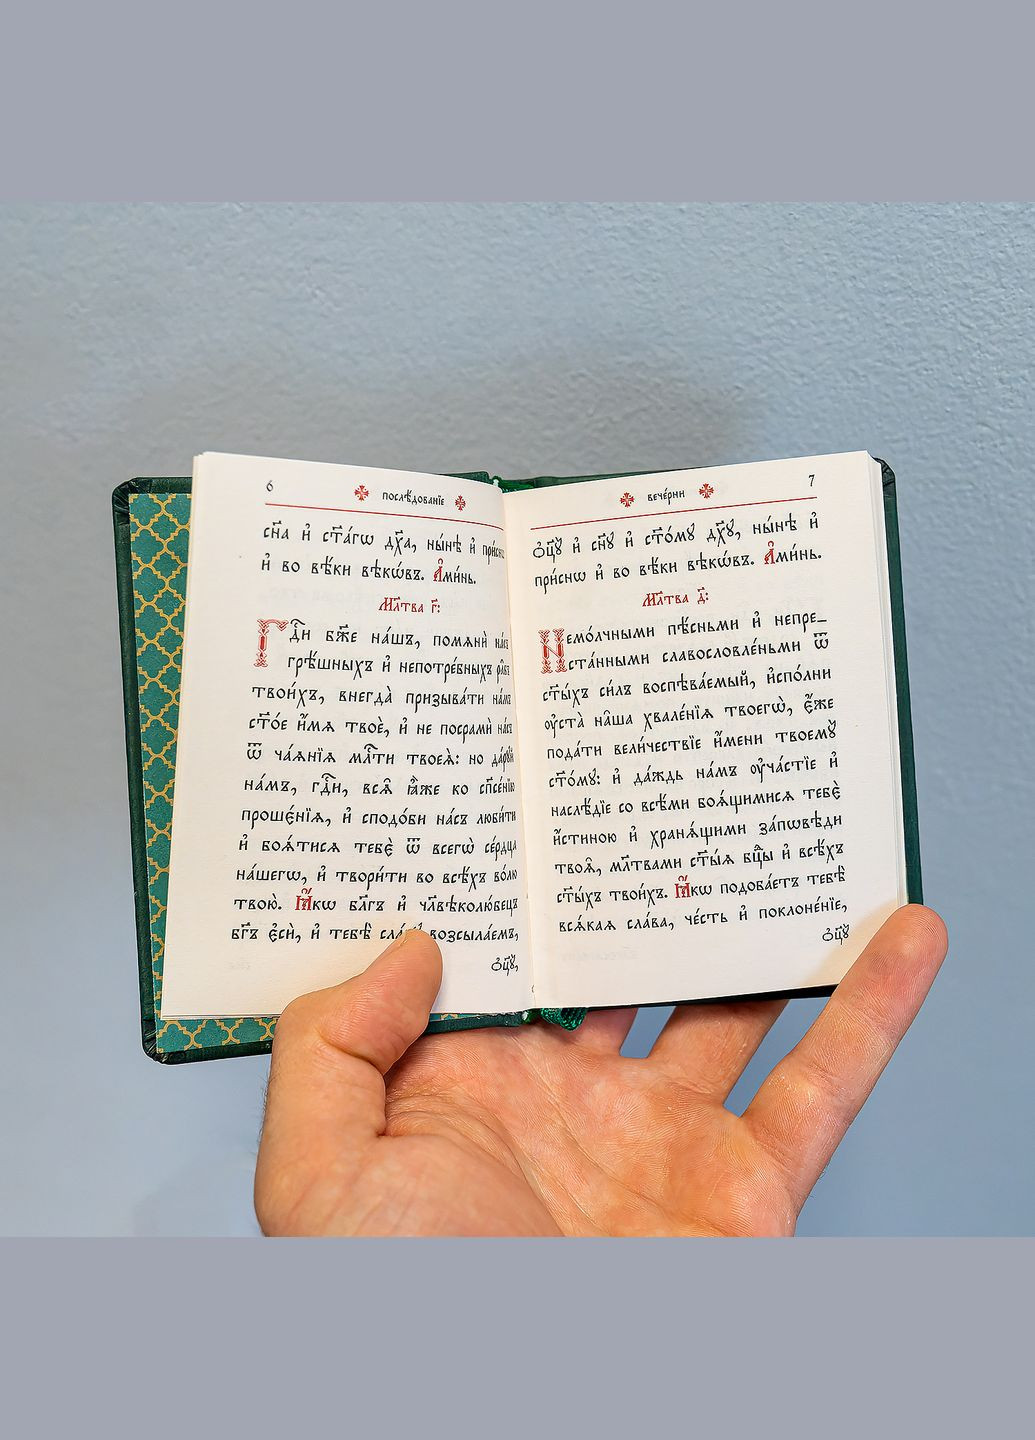 6
послѣ́дованїе
сн҃а и҆ ст҃а́гѡ дх҃а, ны́нѣ и҆ при́снѡ
и҆ во вѣ́ки вѣкѡ́въ. А҆ми́нь.
Мл҃тва г҃:
Гд҇и бж҃е на́шъ, помѧнѝ на́съ
грѣ́шныхъ и҆ непотре́бныхъ ра̑бъ
твои́хъ, внегда̀ призыва́ти на́мъ
ст҃о́е и҆́мѧ твоѐ, и҆ не посрамѝ на́съ
ѿ ча́ѧнїѧ мл҇ти твоеѧ̀: но да́рꙋй
на́мъ, гд҇и, всѧ̑ ꙗ҆̀же ко сп҃се́нїю
прошє́нїѧ, и҆ сподо́би на́съ люби́ти
и҆ боѧ́тисѧ тебє̀ ѿ всегѡ̀ се́рдца
на́шегѡ, и҆ твори́ти во всѣ́хъ во́лю
твою̀. Ꙗ҆́кѡ бл҃гъ и҆ чл҃вѣколю́бецъ
бг҃ъ є҆сѝ, и҆ тебѣ̀ сла́вꙋ возсыла́емъ,
ѻ҆ц҃ꙋ̀,
7
вече́рни
ѻ҆ц҃ꙋ̀ и҆ сн҃ꙋ и҆ ст҃о́мꙋ дх҃ꙋ, ны́нѣ и҆
при́снѡ и҆ во вѣ́ки вѣкѡ́въ. А҆ми́нь.
Мл҃тва д҃:
Немо́лчными пѣ́сньми и҆ непре_
ста́нными славословле́ньми ѿ
ст҃ы́хъ си́лъ воспѣва́емый, и҆спо́лни
ᲂу҆ста̀ на̑ша хвале́нїѧ твоегѡ̀, є҆́же
пода́ти вели́чествїе и҆́мени твоемꙋ̀
ст҃о́мꙋ: и҆ да́ждь на́мъ ᲂу҆ча́стїе и҆
наслѣ́дїе со всѣ́ми боѧ́щимисѧ тебє̀
и҆́стиною и҆ хранѧ́щими за́пѡвѣди
твоѧ̑, мл҃твами ст҃ы́ѧ бц҃ы и҆ всѣ́хъ
ст҃ы́хъ твои́хъ. Ꙗ҆́кѡ подоба́етъ тебѣ̀
всѧ́каѧ сла́ва, че́сть и҆ поклоне́нїе,
ѻ҆ц҃ꙋ̀